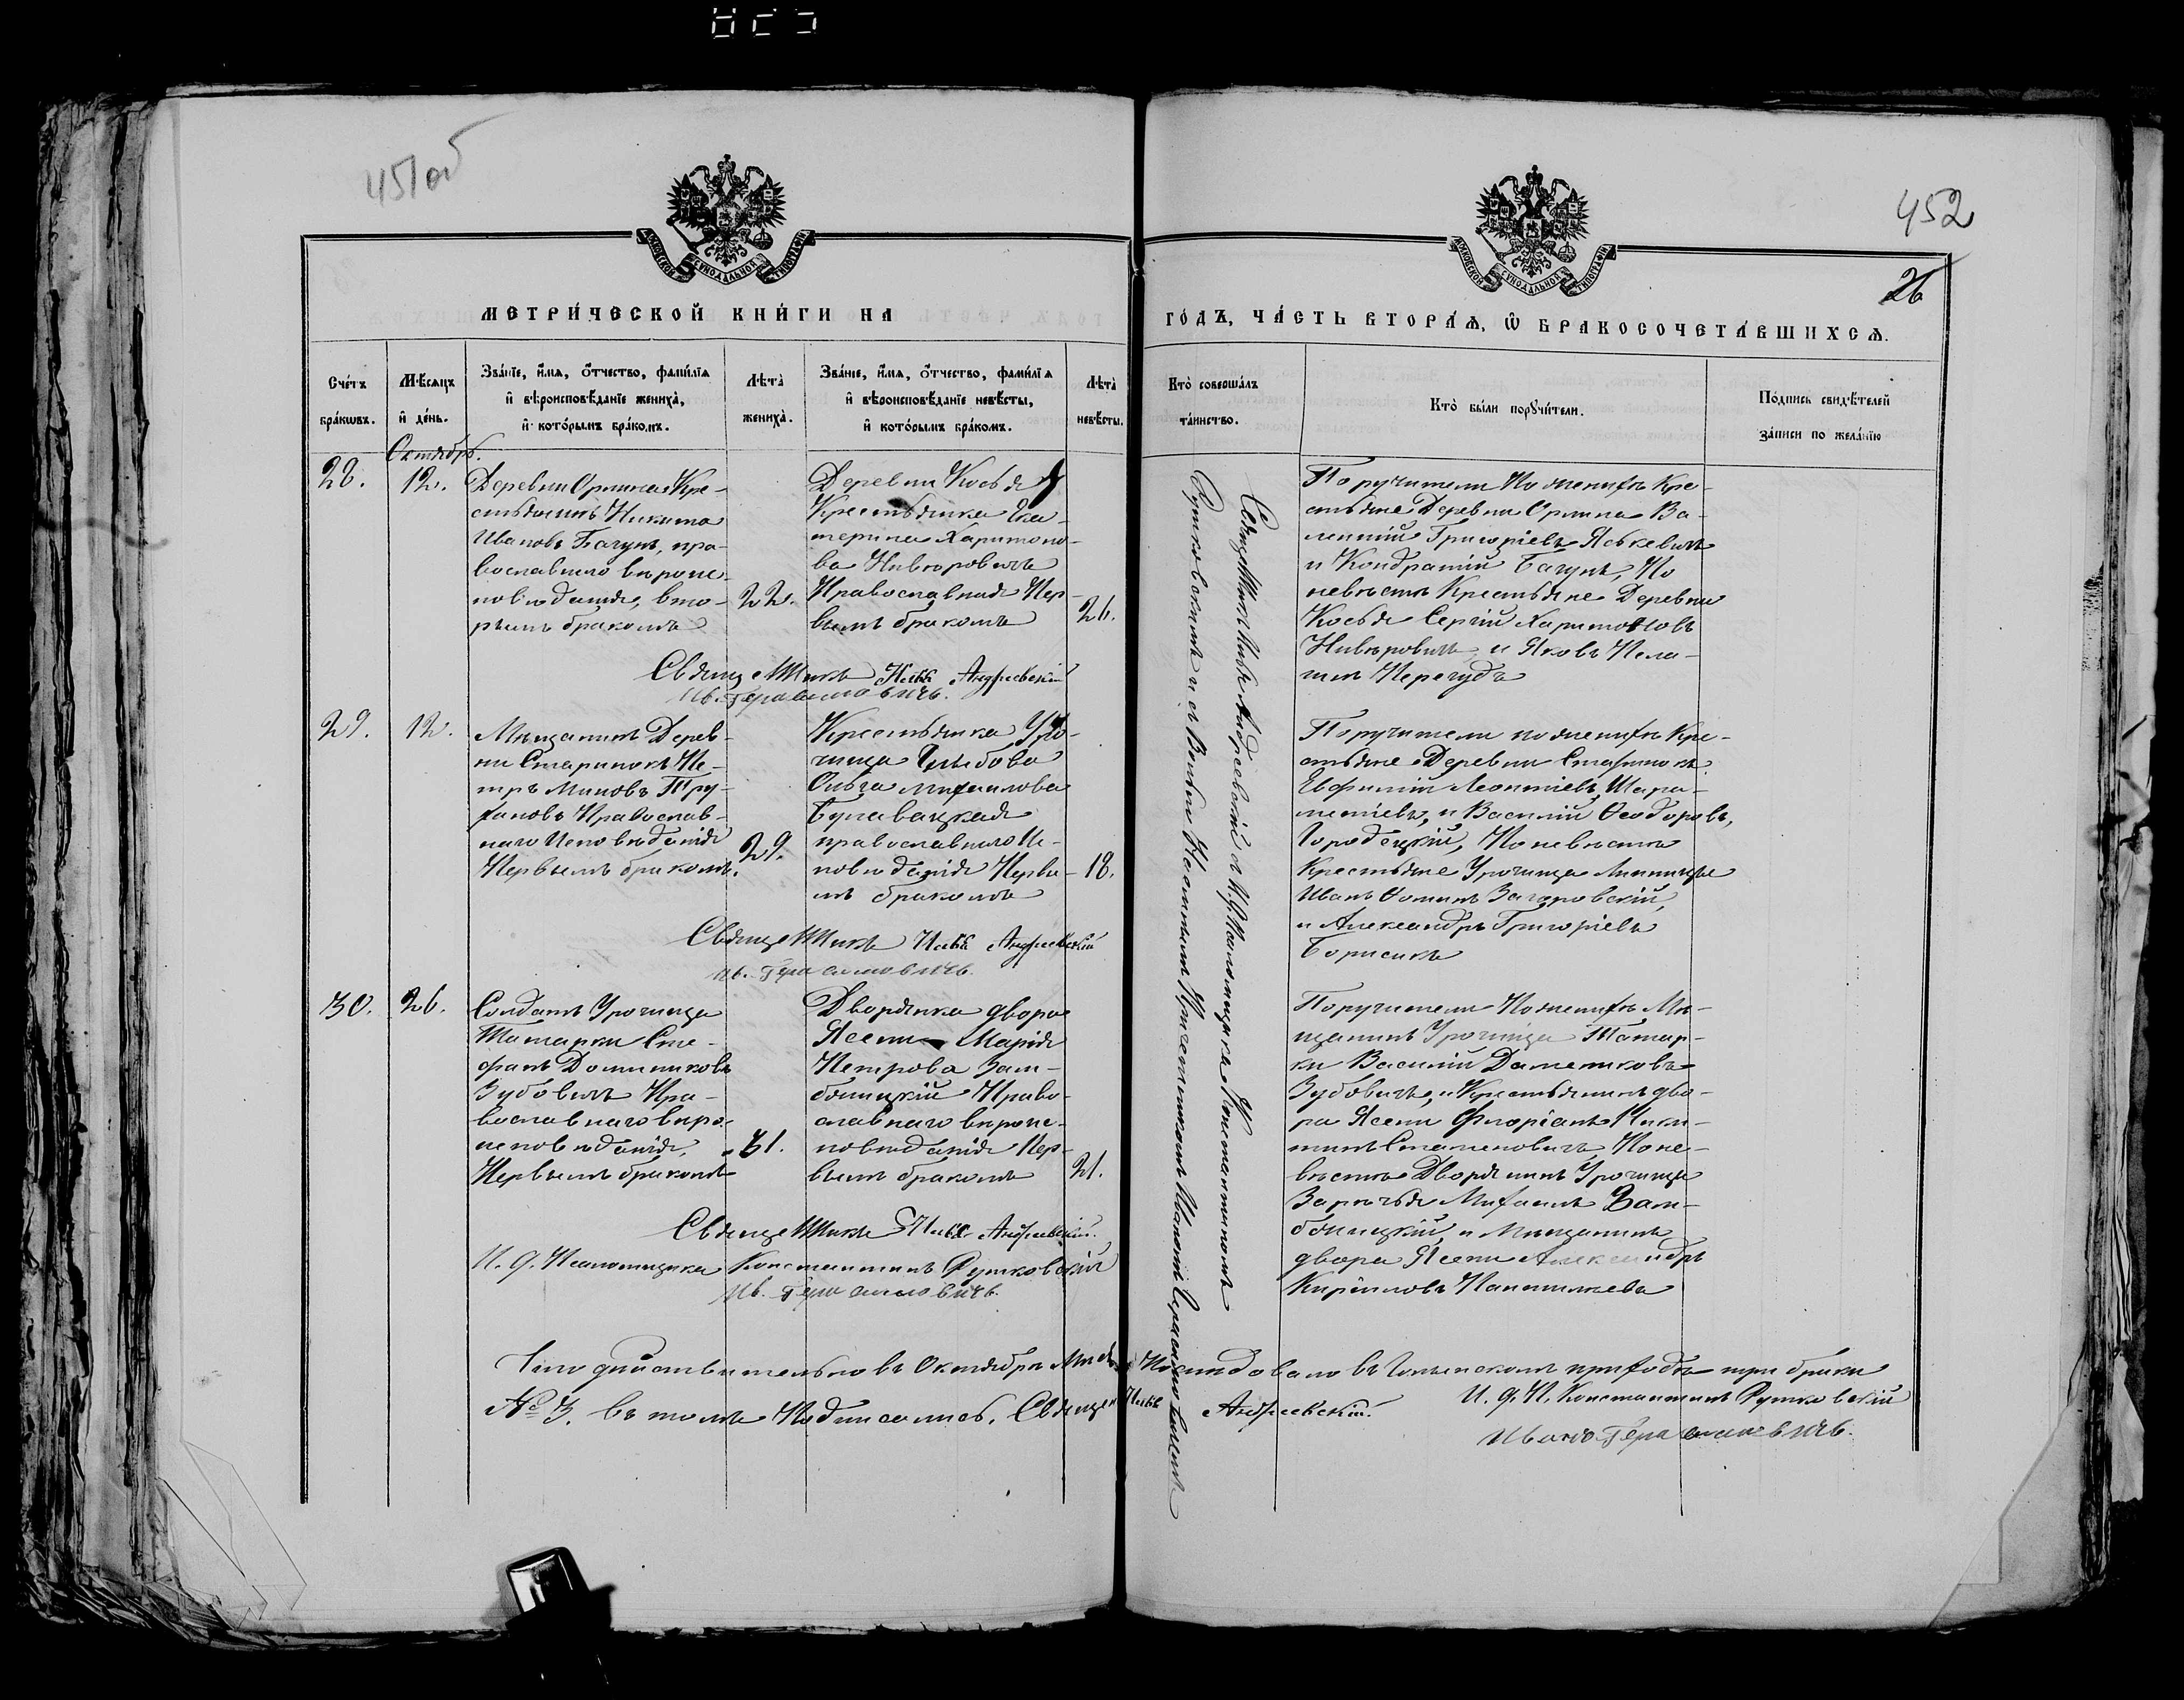 451 об
452
26
МЕТРИ́ЧЕСКОЙ КНИ́ГИ НА
ГО́ДЪ, ЧА́СТЬ ВТОРА́Ѧ, Ѽ БРАКОСОЧЕТА́ВШИХСѦ.
Сче́тъ бра́кωвъ.
Мѣ́сяцъ и҆ де́нь.
Зва́нїе, и҆́мя, о҆́тчество, фами́лїя
и҆ вѣроисповѣ́данїе жениха̀,
и҆ кото́рымъ бра́комъ.
Лѣта̀ жениха̀.
Зва́нїе, и҆́мя, о҆́тчество, фами́лїя
и҆ вѣроисповѣ́данїе невѣ́сты,
и҆ кото́рымъ бра́комъ.
Лѣта̀ невѣ́сты.
Кто̀ соверша́лъ
та́инство.
Кто̀ бы́ли порꙋчи́тели.
По́дпись свидѣ́телей
за́писи по жела́нїю
Октябрь.
28.
12.
Деревни Орлина Кре-
стьянинъ Никита
Ивановъ Багунъ, пра-
вославнаго вѣроис-
повѣданія, вто-
рымъ бракомъ
22.
Деревни Косья
Крестьянка Ека-
терина Харитоно-
ва Нивѣровичъ
Православная Пер-
вымъ бракомъ
26.
Поручители По женихѣ Кре-
стьяне Деревни Орлина Ва-
лентій Григоріевъ Яськевичъ
и Кондратій Багунъ, По
невѣстѣ Крестьяне Деревни
Косья Сергій Харитоновъ
Нивѣровичъ, и Яковъ
Перегудъ
Священникъ Андреевскій
Ив. Герасимовичъ.
29.
12.
Мѣщанинъ Дерев-
ни Старинокъ Пе-
тръ Миновъ Тру-
хановъ Православ-
наго Исповѣданія
Первымъ бракомъ.
29.
Крестьянка Уро-
чища Глыбова
Ольга Михаилова
Булавацкая
православнаго Ис-
повѣданія Первы-
мъ бракомъ
18.
Поручители по женихѣ Кре-
стьяне Деревни Старинокъ
Евфимій Леонтіевъ
и Василій Ѳеодоровъ,
Городецкій, По невѣстѣ
Крестьяне Урочища
Иванъ Ѳоминъ Загоровскій,
и Александръ Григоріевъ
Борисикъ
Священникъ Андреевскій
Ив. Герасимовичъ.
30.
26.
Солдатъ Урочища
Татарки Сте-
фанъ Доминиковъ
Зубовичъ Пра-
вославнаго вѣро-
исповѣданія,
Первымъ бракомъ
31.
Дворянка двора
Ясени Марія
Петрова Зам-
бжицкій Право-
славнаго вѣроис-
повѣданія Пер-
вымъ бракомъ
21.
Поручители По женихѣ Мѣ-
щанинъ Урочища Татар-
ки Василій
Зубовичъ, и Крестьянинъ дво-
ра Ясени Флоріанъ Ники-
тинъ Степановичъ По не-
вѣстѣ Дворянинъ Урочища
Зарѣчья Михаилъ Зам-
бжицкій, и Мѣщанинъ
двора Ясени Александръ
Кириловъ
Священникъ Андреевскій.
И. д. Псаломщика Константинъ Рутковскій
Ив. Герасимовичъ.
Священникъ Андреевскій съ И. д. Псаломщика Константиномъ
Рутковскимъ и съ Иваномъ Герасимовичемъ
Что дѣйствительно въ Октябрѣ Мѣсяцѣ Послѣдовало въ приходѣ три брака
№ 3. въ томъ Подписались. Священникъ Андреевскій.
И. д. П. Константинъ Рутковскій
Иванъ Герасимовичъ.